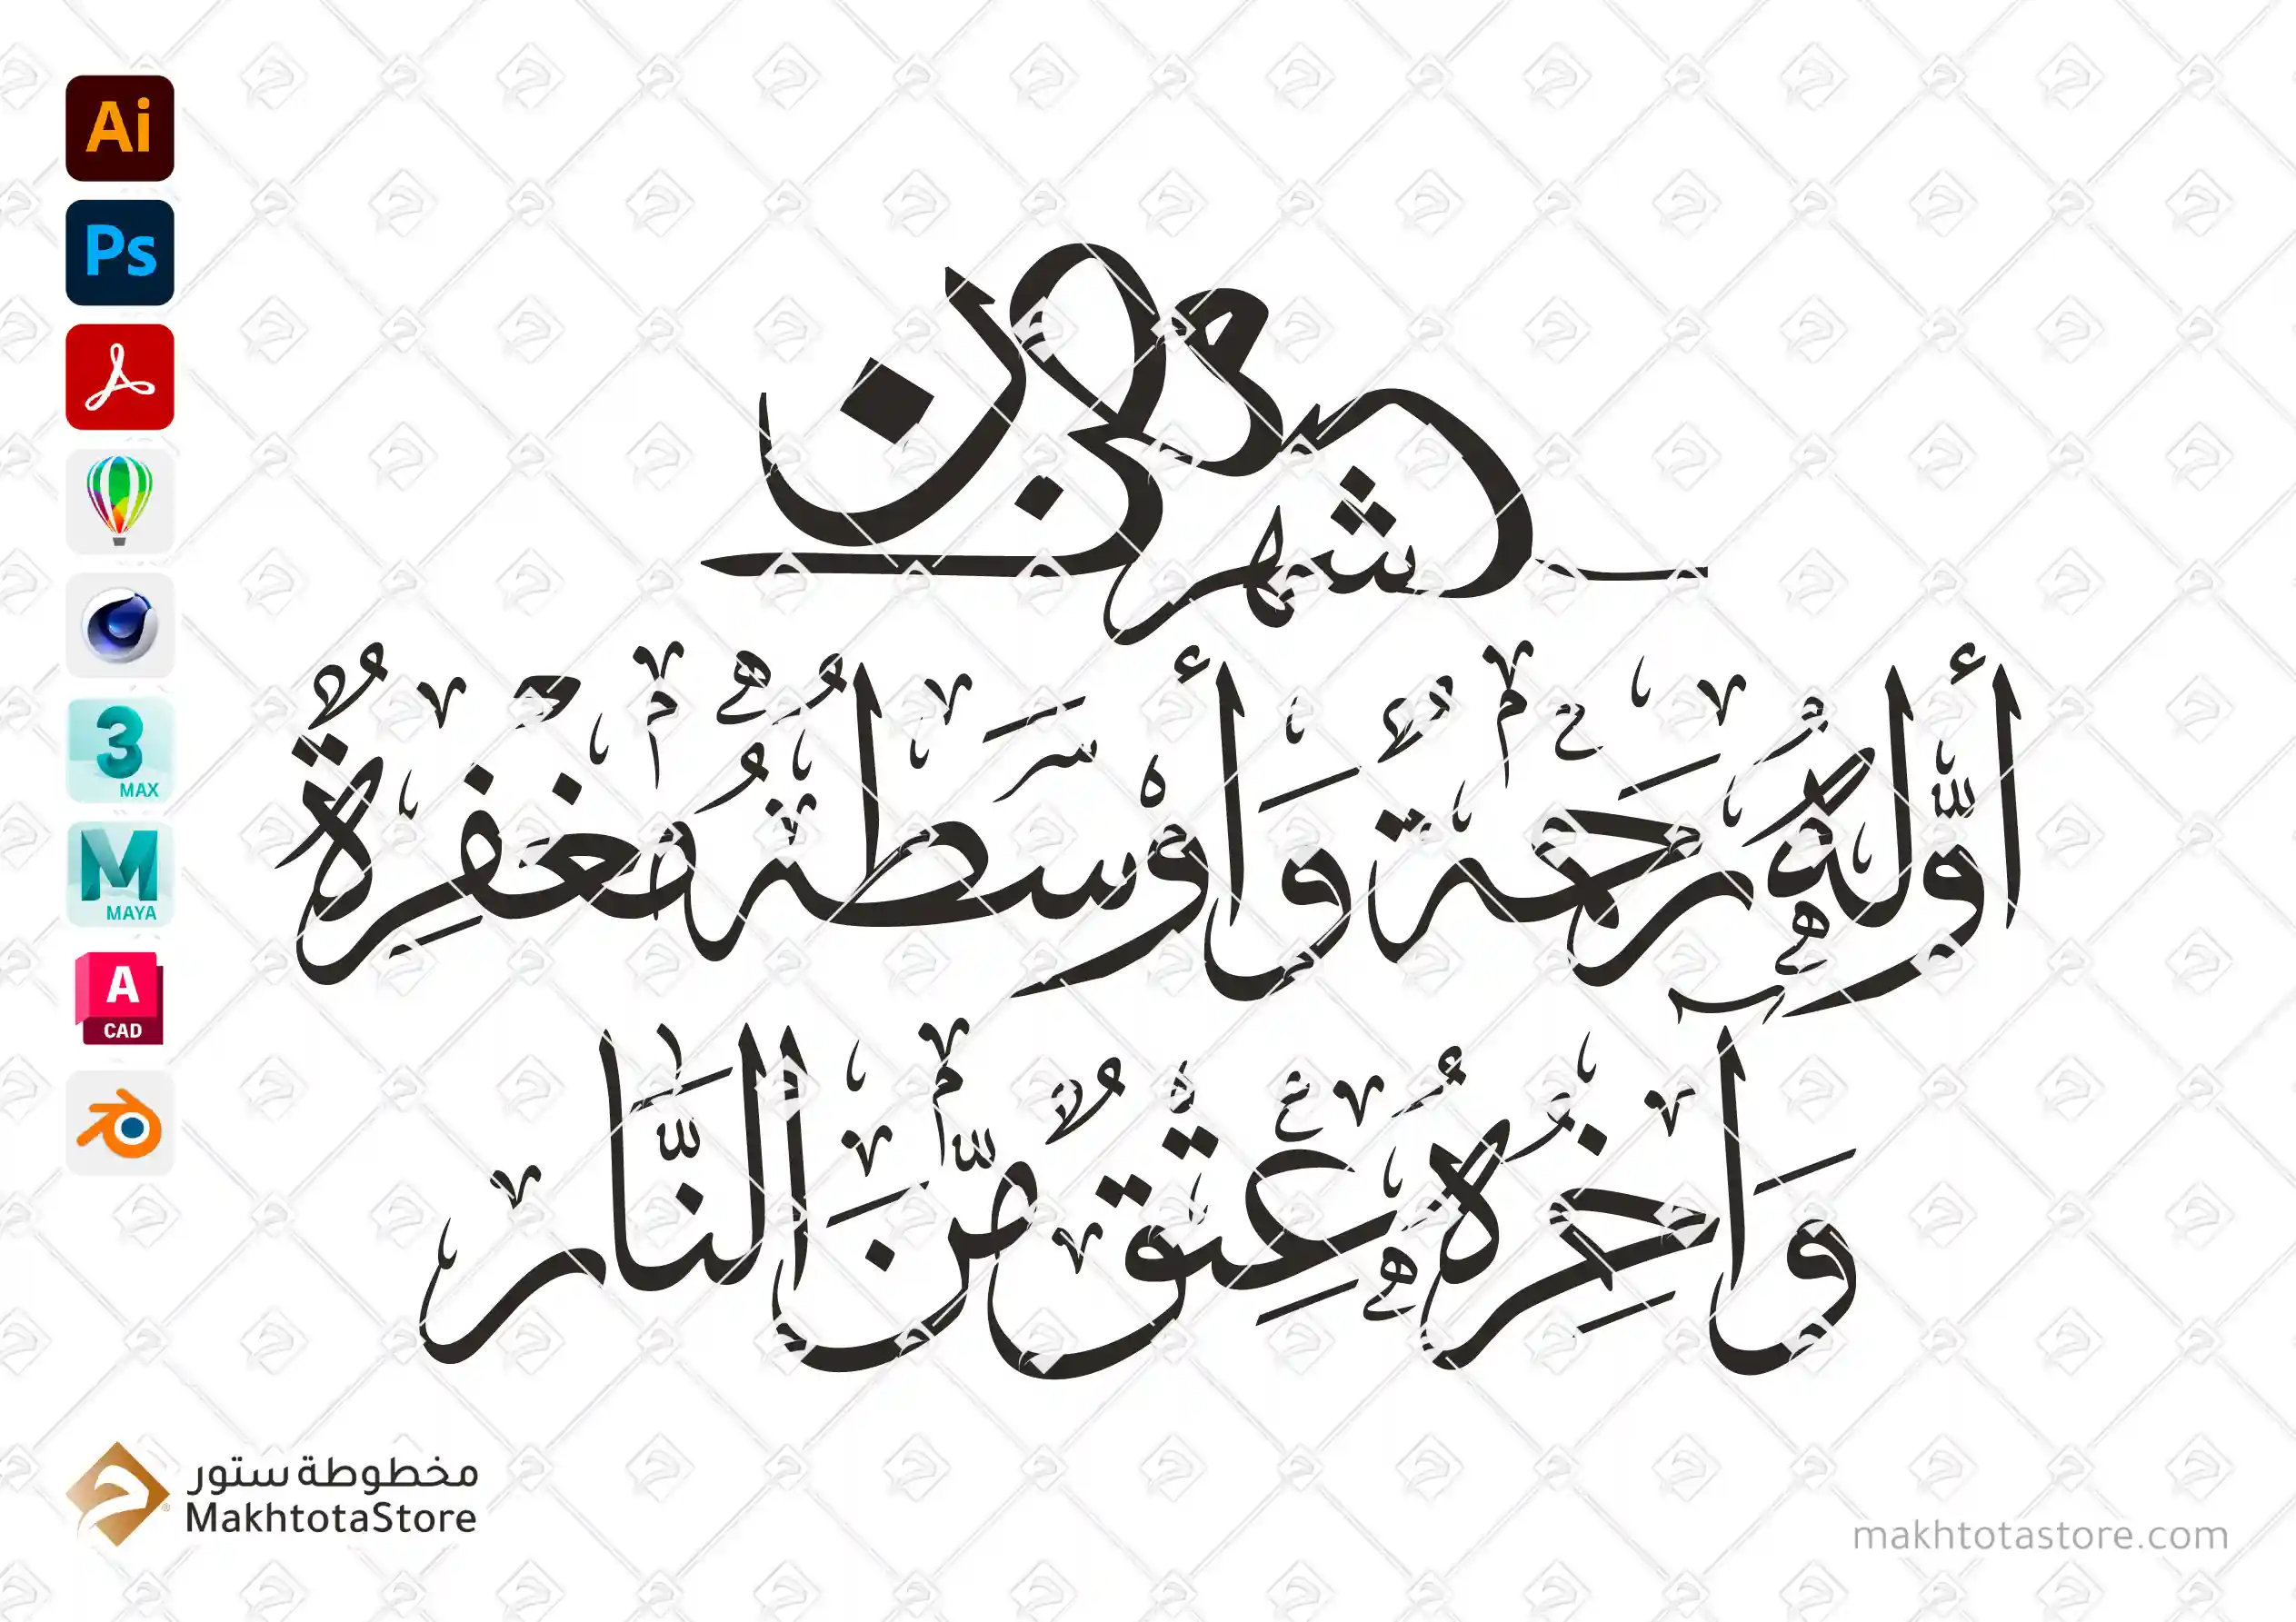 Ai
Ps
3
MAX
M
MAYA
A
CAD
شهر رمضان
أَوَّلُهُ رَحْمَةٌ وَأَوْسَطُهُ مَغْفِرَةٌ
وَآخِرُهُ عِتْقٌ مِّنَ النَّار
مخطوطة ستور
MakhtotaStore
makhtotastore.com